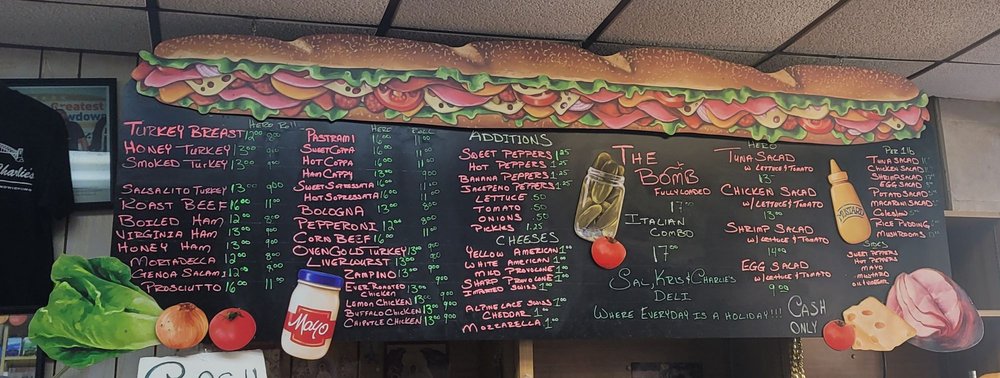 Greatest
owdown
Charlie's
HERO Roll
TURKEY BREAST 12.00 8.00
HONEY TURKEY 13.00 9.00
SMOKED TURKEY 13.00 9.00
SALSALITO TURKEY 13.00 9.00
ROAST BEEF 16.00 11.00
BOILED HAM 12.00 8.00
VIRGINIA HAM 13.00 9.00
HONEY HAM 13.00 9.00
MORTADELLA 12.00
GENOA SALAMI 12.00
PROSCIUTTO 16.00 11.00
HERO ROLL
PASTRAMI
SWEET COPPA
HOT COPPA
HAM CAPPY
SWEET SOPRESSATA
HOT SOPRESSATA
BOLOGNA
PEPPERONI
CORN BEEF 16.00
OVENGOLD TURKEY 13.00 9.00
LIVERWURST 13.00
ZAMPINO 13.00 9.00
EVER ROASTED CHICKEN 13.00 9.00
LEMON CHICKEN 13.00 9.00
BUFFALO CHICKEN 13.00 9.00
CHIPOTLE CHICKEN 13.00 9.00
ADDITIONS
SWEET PEPPERS 1.25
HOT PEPPERS 1.25
BANANA PEPPERS 1.25
JALAPENO PEPPERS 1.25
LETTUCE .50
TOMATO .50
ONIONS .50
PICKLES 1.25
CHEESES
YELLOW AMERICAN 1.00
WHITE AMERICAN 1.00
MILD PROVOLONE 1.00
SHARP PROVOLONE 1.00
IMPORTED SWISS 1.00
ALPINE LACE SWISS 1.00
CHEDDAR 1.00
MOZZARELLA 1.00
Mayo
THE BOMB
FULLY LOADED
17.00
ITALIAN
COMBO
17.00
SAL, KRIS & CHARLIE'S
DELI
WHERE EVERYDAY IS A HOLIDAY!!!
HERO
TUNA SALAD
W/ LETTUCE & TOMATO
13.00
CHICKEN SALAD
W/ LETTUCE & TOMATO
13.00
SHRIMP SALAD
W/ LETTUCE & TOMATO
14.00
EGG SALAD
W/ LETTUCE & TOMATO
9.00
CASH
ONLY
MUSTARD
PER 1 lb
TUNA SALAD
CHICKEN SALAD
SHRIMP SALAD
EGG SALAD
POTATO SALAD
MACARONI SALAD
COLESLAW
RICE PUDDING
MUSHROOMS
SWEET PEPPERS
HOT PEPPERS
MAYO
MUSTARD
OIL & VINEGAR